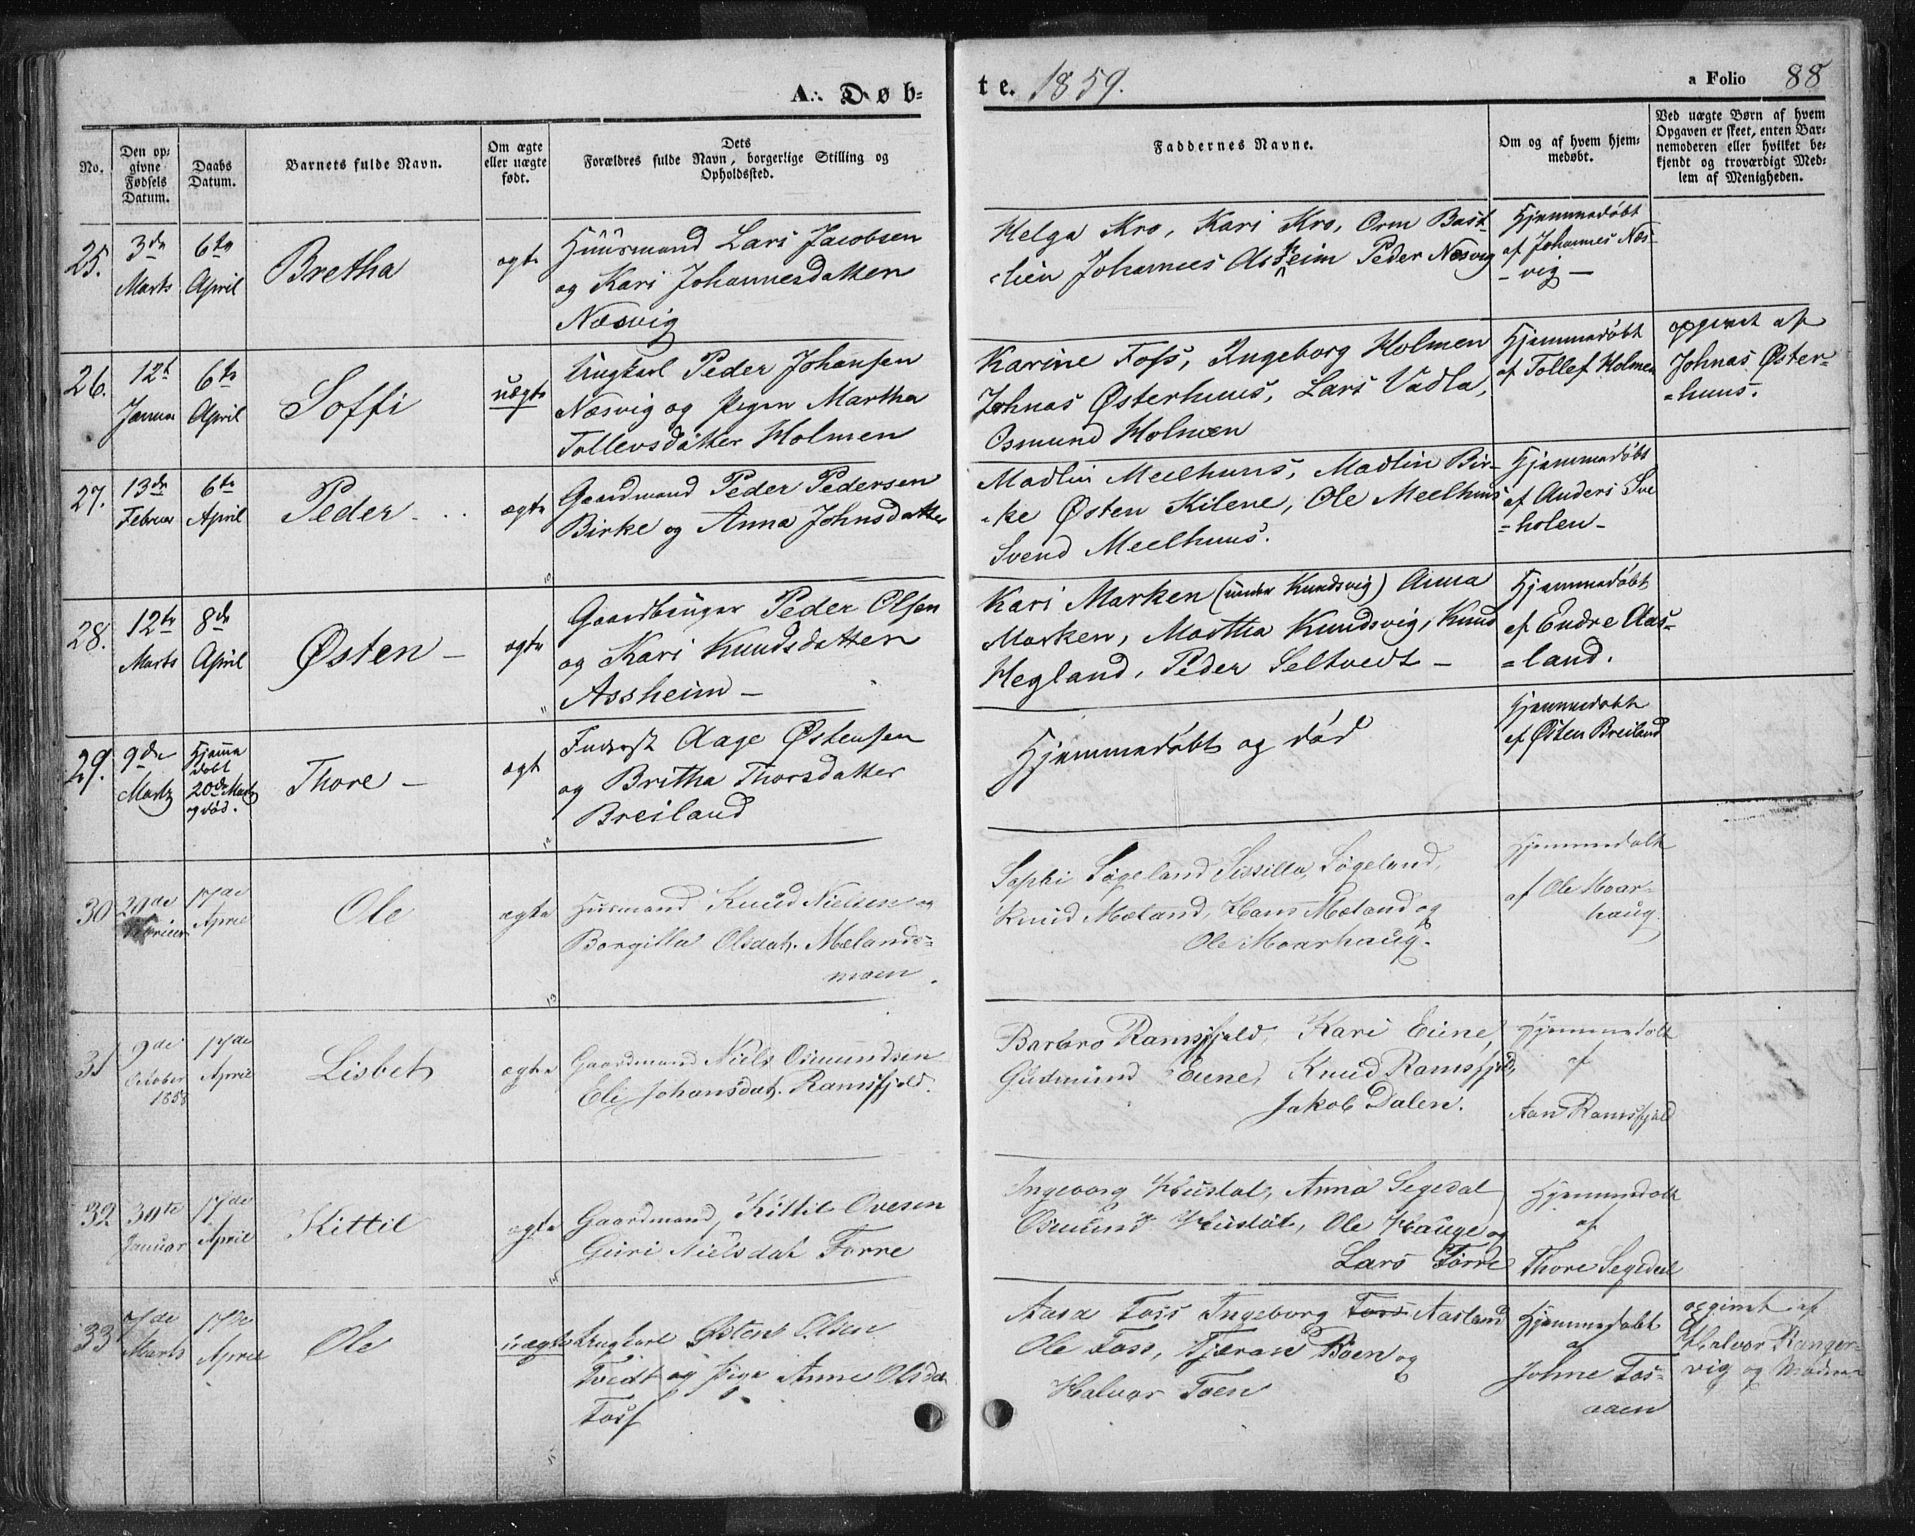 A. Døb=
te. 1859.
a Folio 88
No.
Den op=
givne
Fødsels
Datum.
Daabs
Datum.
Barnets fulde Navn.
Om ægte
eller uægte
født.
Dets
Forældres fulde Navn, borgerlige Stilling og
Opholdssted.
Faddernes Navne.
Om og af hvem hjem=
medøbt.
Ved uægte Børn af hvem
Opgaven er skeet, enten Bar=
nemoderen eller hvilket be=
kjendt og troværdigt Med=
lem af Menigheden.
25.
3de
Marts
6te
April
Bretha
ægte
Huusmand Lars Jacobsen
og Kari Johannesdatter
Næsvig
Helga Kro, Kari Kro, Orm Bast-
-lien Johannes Asheim Peder Næsvig
Hjemmedøbt
af Johannes Næs-
- vig -
26.
12te
Januar
6te
April
Soffi
uægte
Ungkarl Peder Johansen
Næsvig og Pigen Martha
Tollevsdatter Holmen
Karine Foss, Ingeborg Holmen
Johnas Østerhuus, Lars Vadla,
Osmund Holmen
Hjemmedøbt
af Tollef Holmen
opgivet af
Johnas Øster-
=huus.
27.
13de
Februar
6te
April
Peder
ægte
Gaardmand Peder Pedersen
Birke og Anna Johnsdatter
Madlin Meelhuus, Madlin Bir-
-ke Østen Kilene, Ole Meelhuus
Svend Meelhuus.
Hjemmedøbt
af Anders Sve
=holen-
28.
12te
Marts
8de
April
Østen -
ægte
Gaardbruger Peder Olsen
og Kari Knudsdatter
Assheim -
Kari Marken (under Kundsvig) Anna
Marken, Martha Kundsvig, Knud
Hegland, Peder Seltvedt -
Hjemmedøbt
af Endre Aas-
=land.
29.
9de
Marts
Hjemme
døbt
20de Marts
og død.
Thore -
ægte
Inderst Aage Østensen
og Britha Thorsdatter
Breiland
Hjemmedøbt og død
Hjemmedøbt
af Østen Breiland
30
Februar
17de
April
Ole
ægte
Husmand Knud Nielsen og
Borgilla Olsdat. Mælands-
moen.
Sophi Søgeland Sissilla Søgeland,
Knud Mæland, Hans Mæland og
Ole Moarhaug.
Hjemmedøbt
af Ole Moar-
haug.
31
9de
October
1858
17de
April
Lisbet
ægte
Gaardmand Niels Osmundsen
Eli Johansdat. Ramsfjeld.
Barbro Ramsfjeld, Kari Eiene,
Gudmund Eiene, Knud Ramsfjeld,
Jakob Dalen.
Hjemmedøbt
af
Aan Ramsfjeld
32
30te
Januar
17de
April
Kittil
ægte
Gaardmand, Kittil Ovesen
Guri Nielsdat Førre
Ingeborg Hustøl, Anna Segedal
Osmund Hustøl, Ole Hauge og
Lars Førre
Hjemmedøbt
af
Thore Segedal
33
7de
Marts
17de
April
Ole
uægte
Ungkarl Østen Olsen
Tvedt og Pige Anne Olsda
Foss
Aasa Foss Ingeborg Foss Aasland
Ole Foss, Tjæran Boen og
Halvor Foen
Hjemmedøbt
af
Johne Fos-
aaen
opgivet af
Halvor Ranger-
vig og Moderen